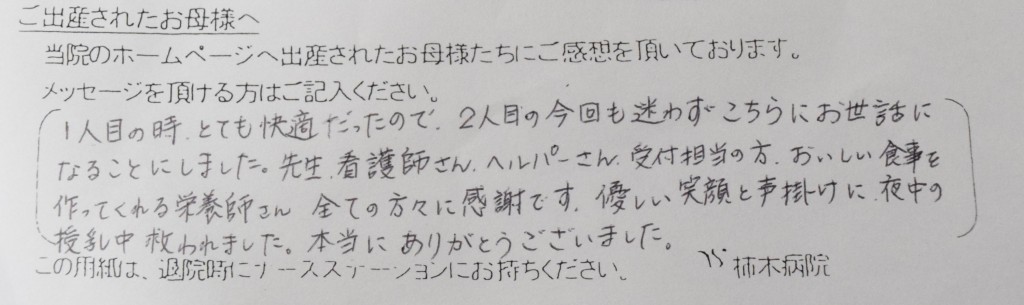 ご出産されたお母様へ
当院のホームページへ出産されたお母様たちにご感想を頂いております。
メッセージを頂ける方はご記入ください。
1人目の時、とても快適だったので、2人目の今回も迷わずこちらにお世話に
なることにしました。先生、看護師さん、ヘルパーさん、受付担当の方、おいしい食事を
作ってくれる栄養師さん 全ての方々に感謝です。優しい笑顔と声掛けに、夜中の
授乳中 救われました。本当にありがとうございました。
この用紙は、退院時にナースステーションにお持ちください。 柿木病院